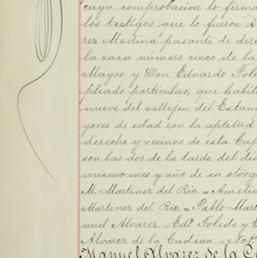 cuya comprobacion lo firma
los testigos que lo fueron D
rez Medina pasante de dere
la casa número cinco de la
Mayor y Don Eduardo Tole
pleado particular, que habit
nueve del callejon del Estan
yores de edad con la aptitud
derecho y vecinos de esta Cap
son las dos de la tarde del dia
mismo mes y año de su otorg
M. Martinez del Rio.=Ameli
Martinez del Rio.=Pablo Mart
nuel Alvarez.=Edo. Toledo y C
Alvarez de la Cadena.=Noto
Manuel Alvarez de la Ca